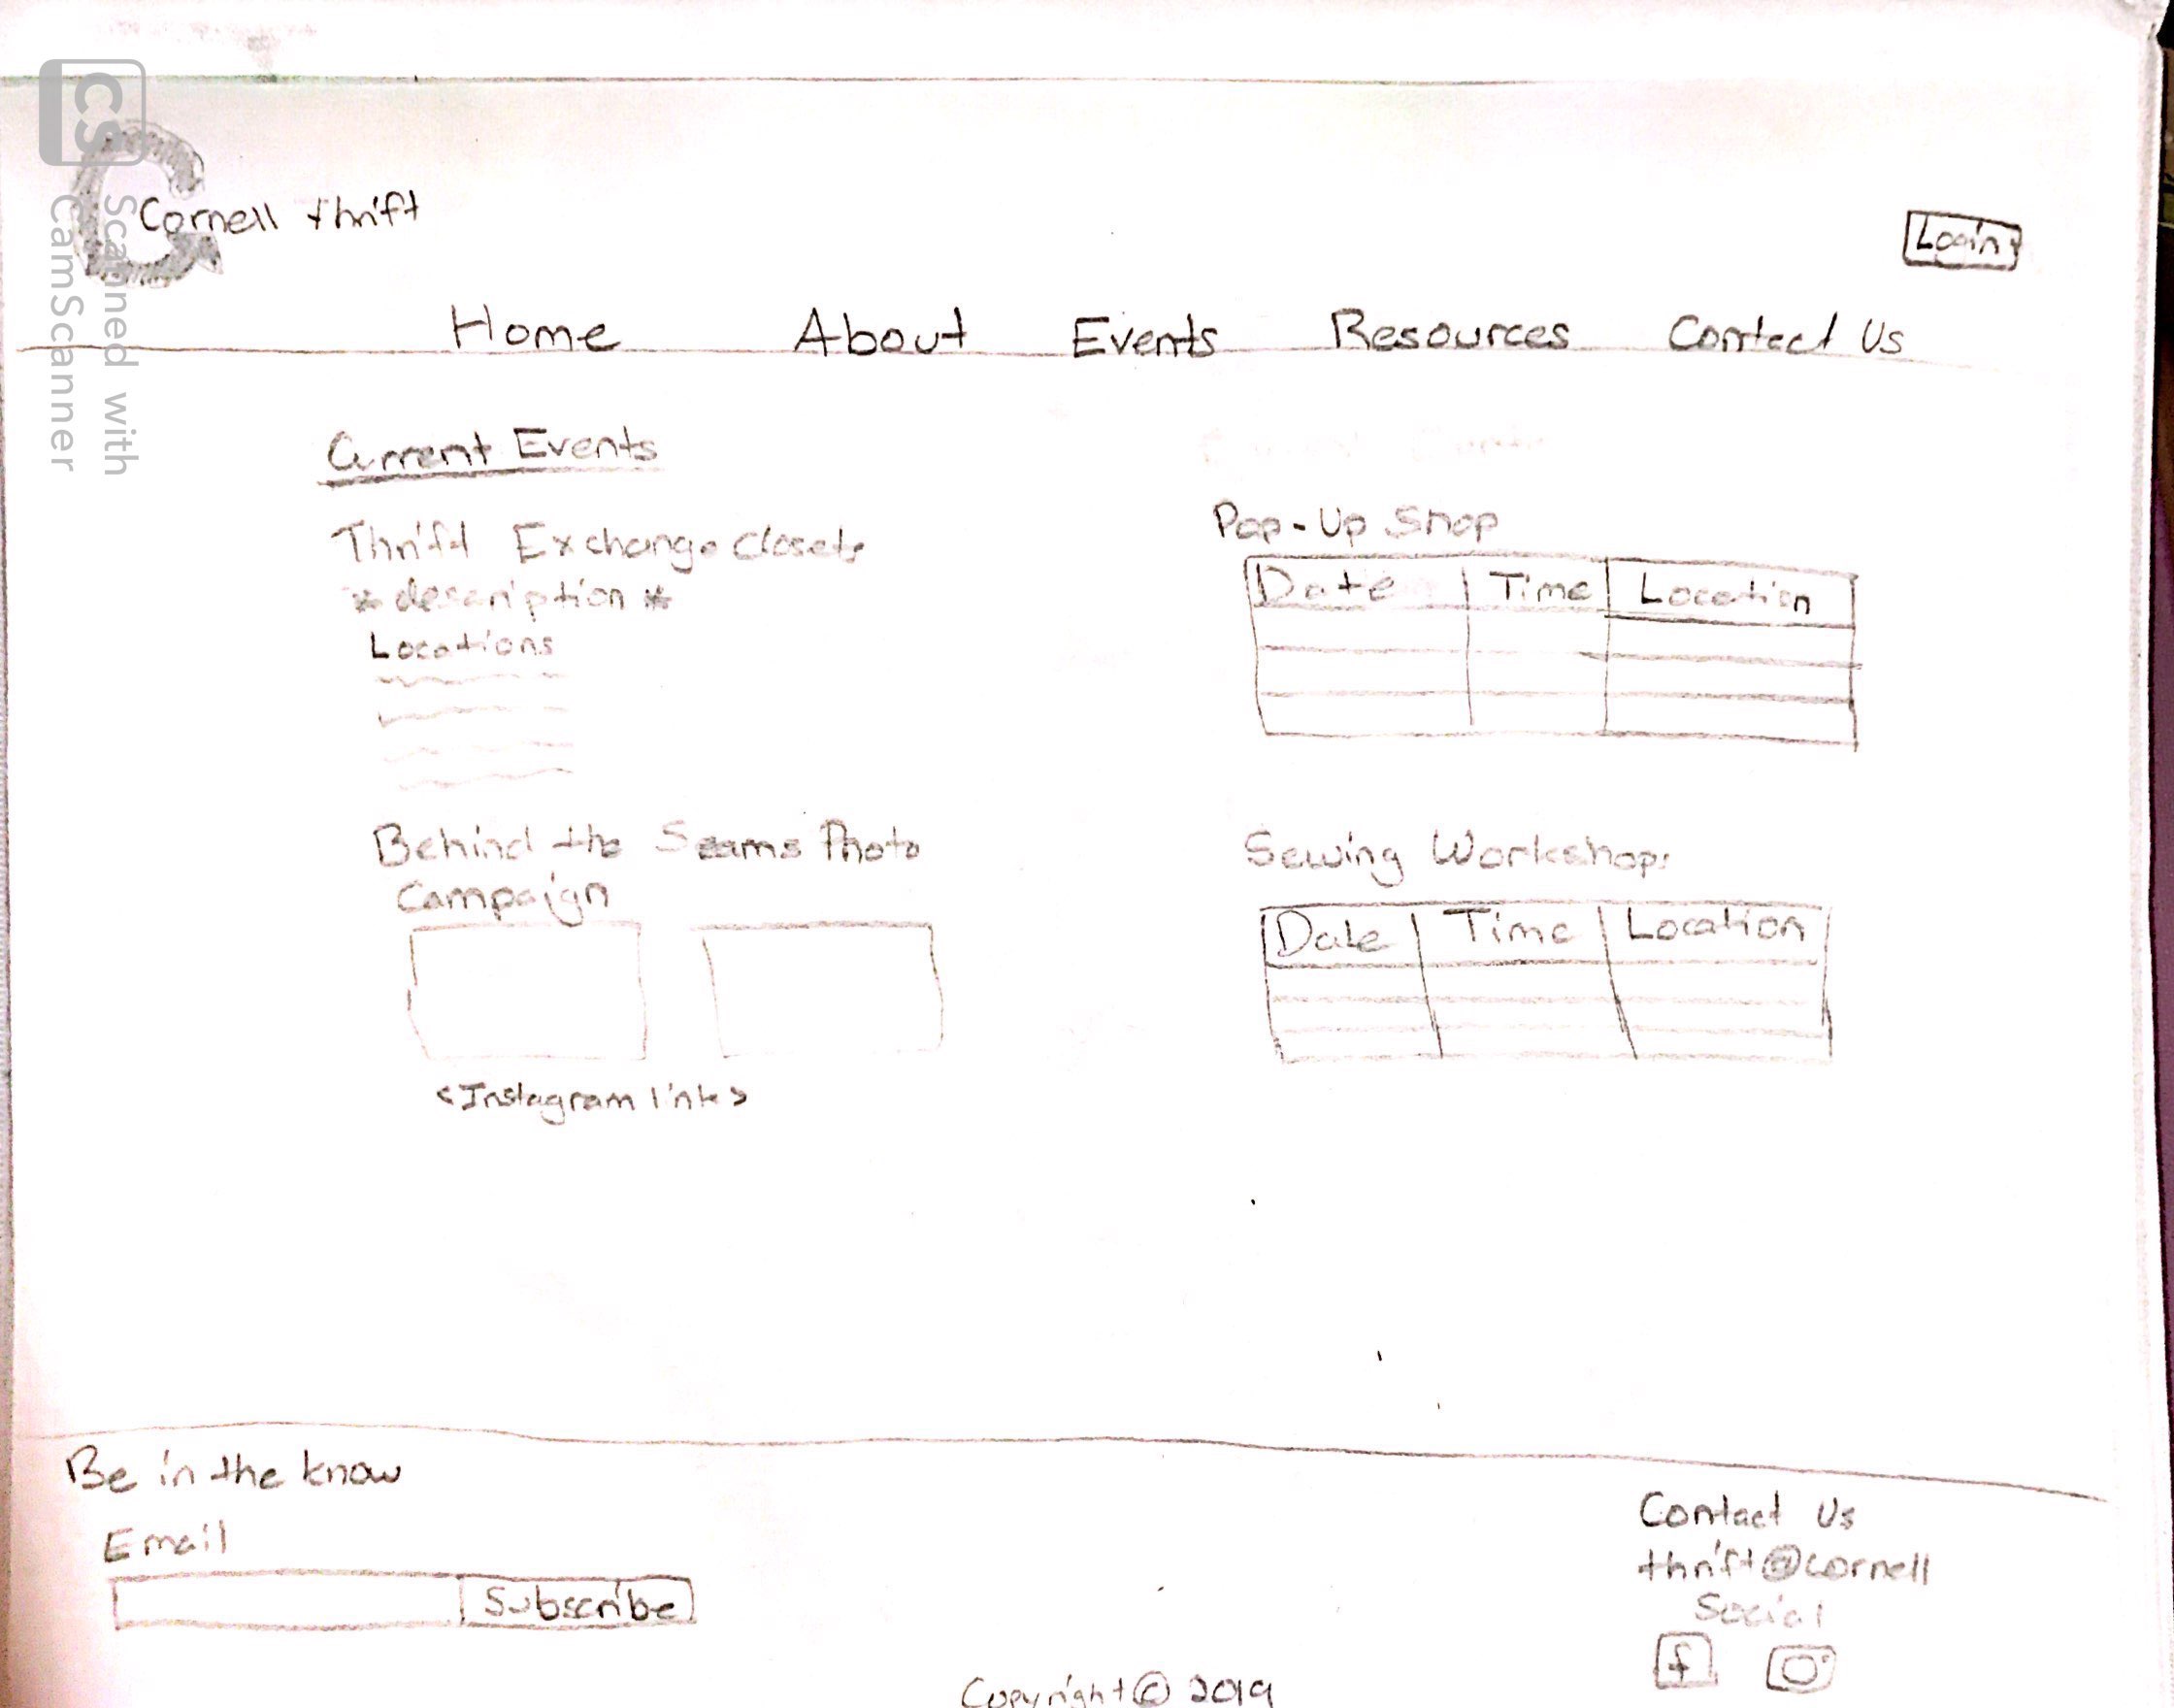 CS Scanned with
CamScanner
Cornell thrift
Login
Home About Events Resources Contact Us
Current Events
Thrift Exchange Closets
* description *
Locations
Behind the Seams Photo
Campaign
<Instagram link>
Pop-Up Shop
Date Time Location
Sewing Workshops
Date Time Location
Be in the know
Email
Subscribe
Contact Us
thrift@cornell
Social
f
Copyright © 2019